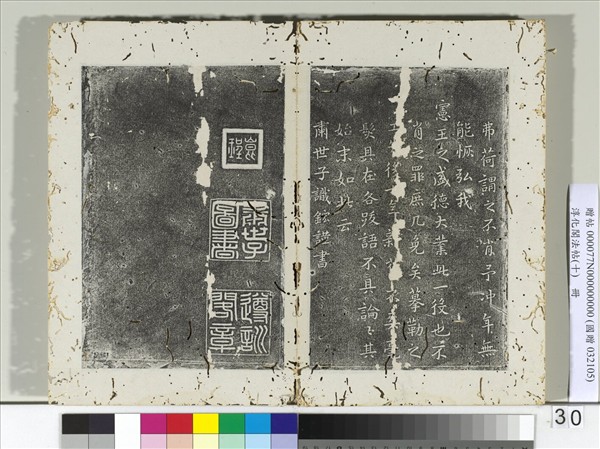 弗荷謂之不肖予沖年無
能恢弘我
憲王之盛德大業此一役也不
肖之罪庶几免矣摹勒之
後
髮具在各跋語不具論〻其
始末如此云
肅世子識鋐謹書
肅世子圖書
遵訓閣章
贈帖 000077N000000000 (國贈 032105)
淳化閣法帖(十) 冊
30